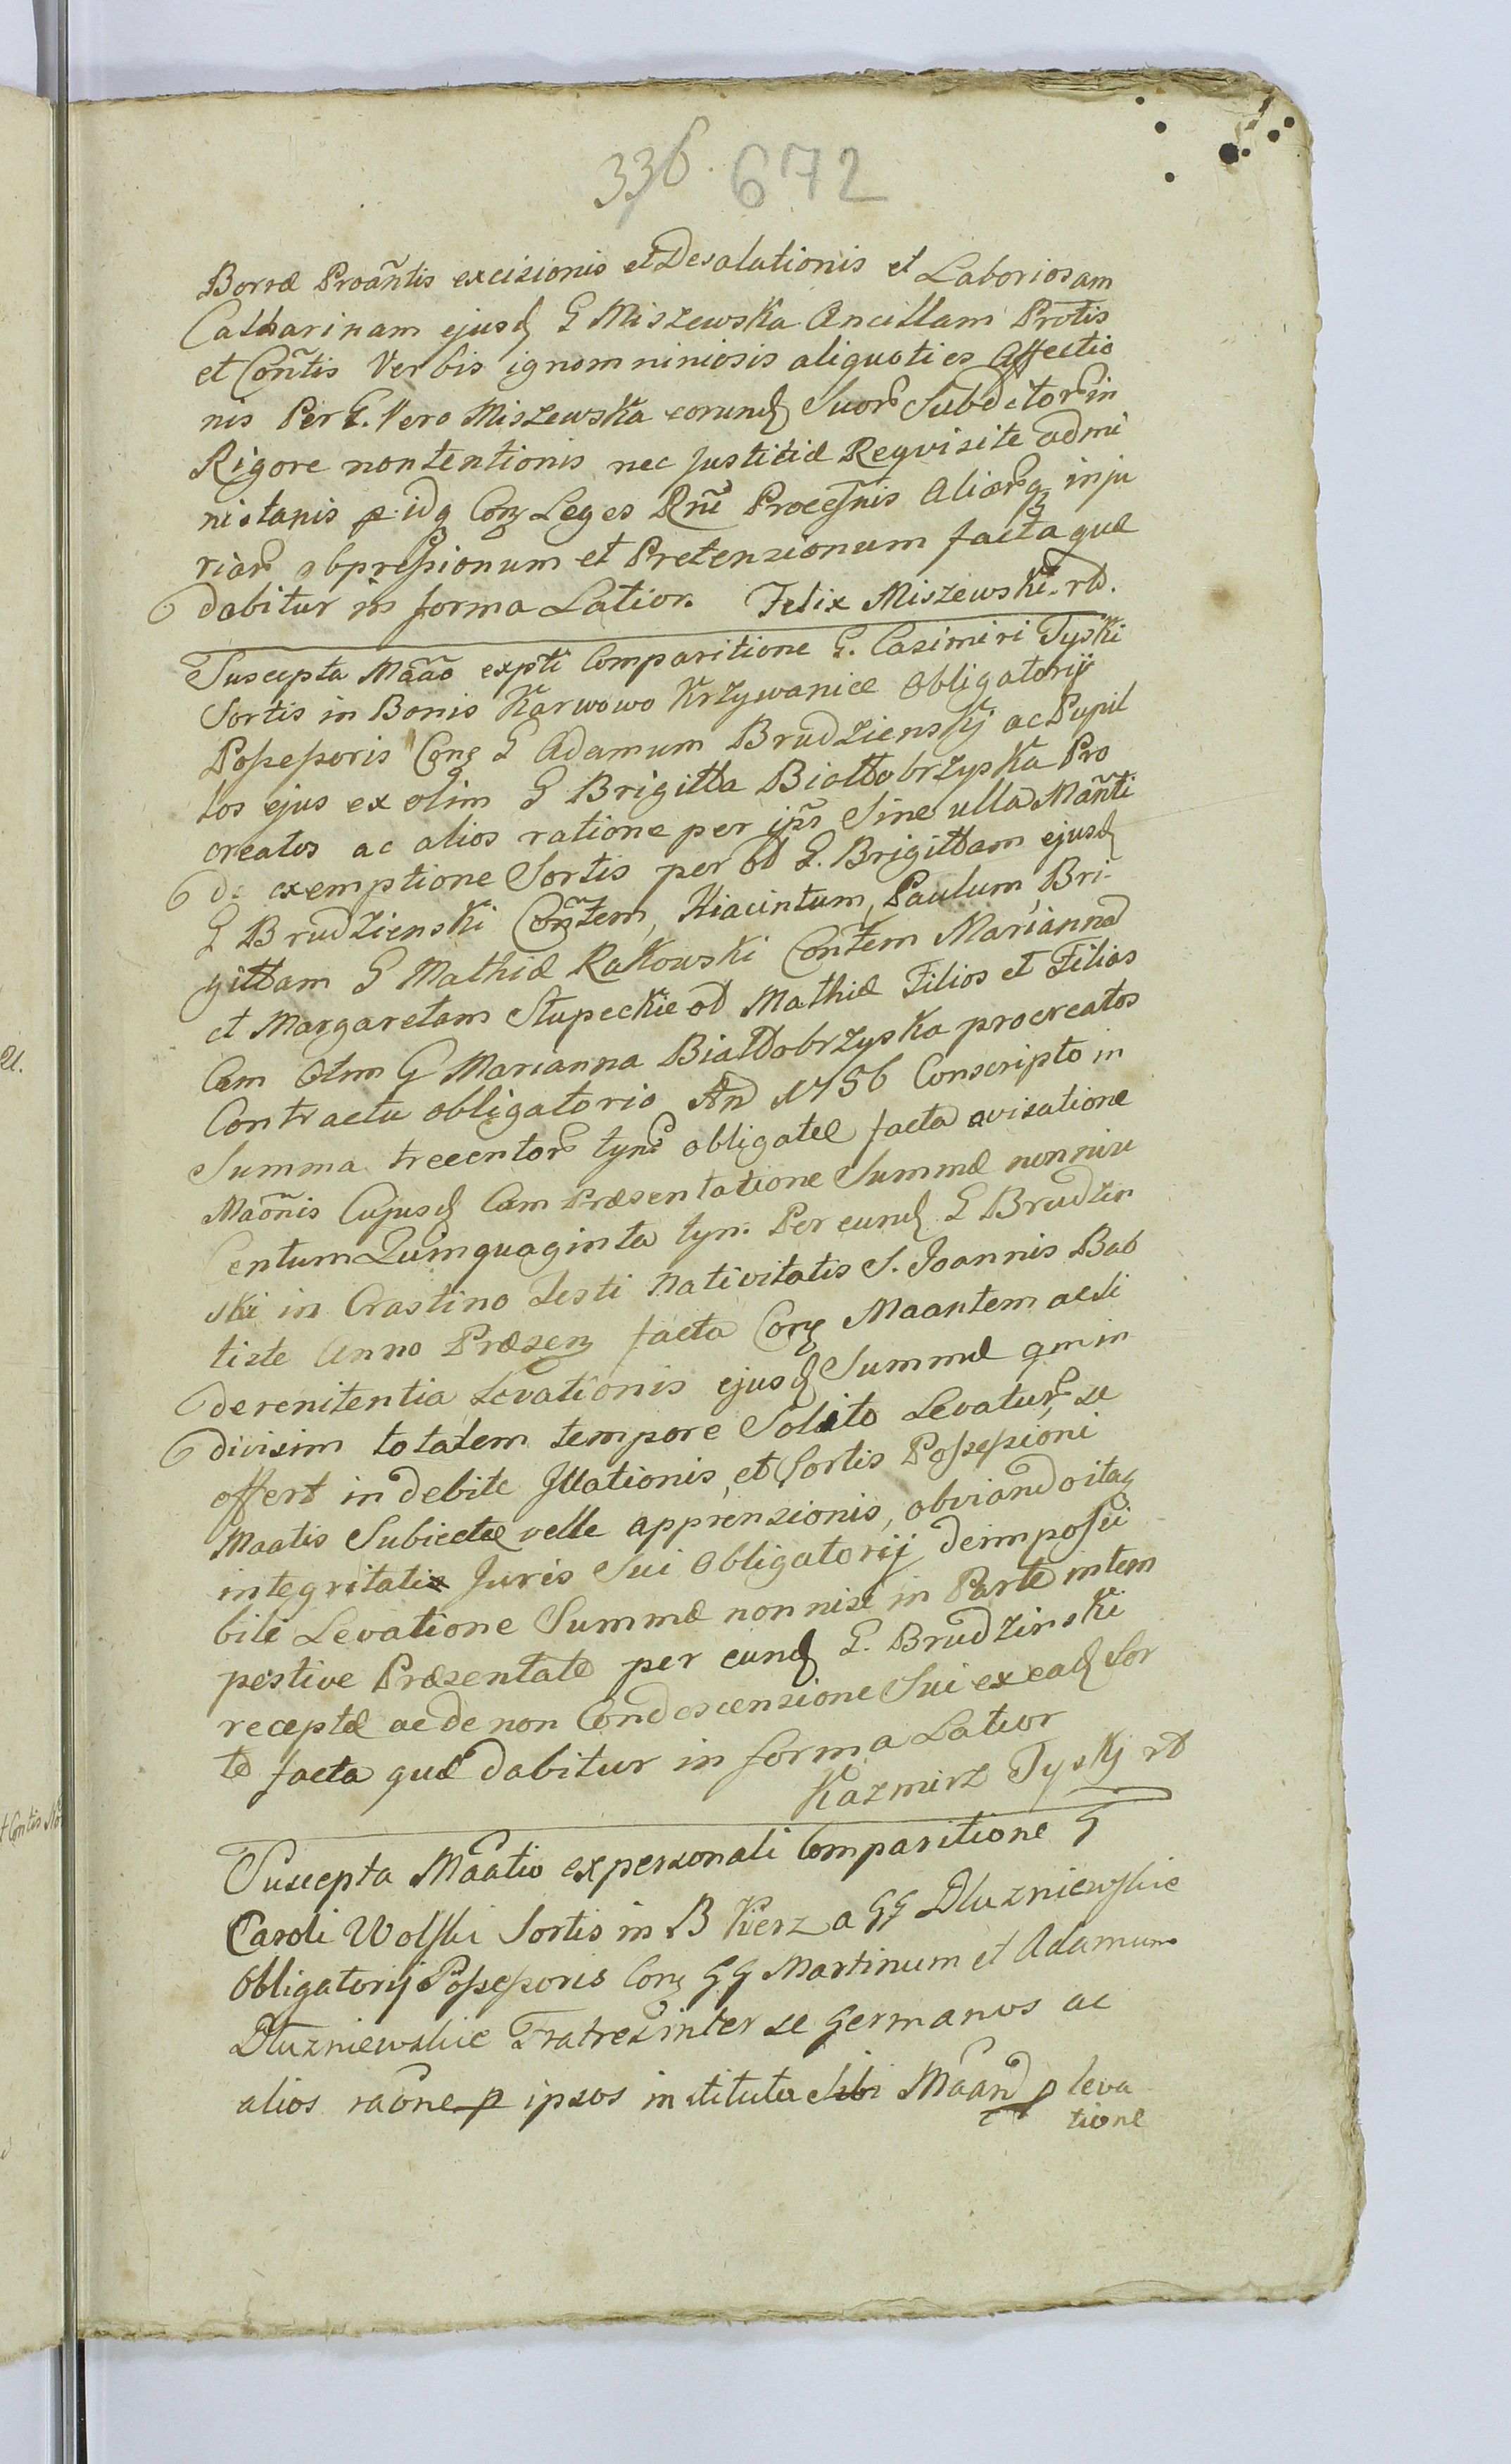 336. 672
Borræ Proãntis excisionis et Desolationis et Laboriosam
Catharinam ejusd G Miszewska Ancillam Protis
et Cõntis Verbis ignomniniosis aliquoties Affectio
nis Per G. Vero Miszewska eorund Suor Subditor in
Rigore non tentionis nec Justitiæ Reqvisite admi
nistanis p idq Conz Leges Rni Procesnis Aliarq inju
riar obpreßionum et Pretensionum facta quæ
dabitur in forma Latior. Felix Miszewski rd.
Suscepta Mããõ expti Comparitione G. Casimiri Tyski
Sortis in Bonis Karwowo Krzywanice Obligatorij
Poßeßoris Conz G Adamum Brudzienskj ac Pupil
los ejus ex olim G Brigitta Białłobrzyska Pro
creatos ac alios ratione per ips Sine ulla Mañti
de exemptione Sortis per od G. Brigittam ejusd
G Brudzienski Cõntem, Hiacintum, Paulum, Bri-
gittam G Mathiæ Rakowski Contem Marianna
et Margaretam Słupeckie od Mathiæ Filios et Filias
Cum Olim G Marianna Białłobrzyska procreatos
Contractu obligatorio An 1756 Conscripto in
Summa trecentor tynf obligatæ facta avisatione
Maõnis Cujusd Cum Præsentatione Summæ nonnisi
Centum Quinquaginta tynf Per eund G Brudzin
ski in Crastino Festi Nativitatis S. Joannis Bab
tiste Anno Præsenz facta Conz Maantem ac si
de renitentia Levationis ejusd Summæ qm in
divisim totalem tempore Solito Levatur se
offert indebite Illationis, et Sortis Poßeßioni
Maatis Subiectæ velle apprensionis, obviando itaq
integritatis Juris Sui Obligatorij deimpoßi
bili Levatione Summæ non nisi in Parte intem
pestive Præsentate per eund G. Brudzinski
receptæ ac de non Condescensione Sui ex ead Sor
te facta quæ dabitur in forma Latior
Kazmirz Tyskj rd
Suscepta Maatio ex personali Comparitione G
Caroli Wolski Sortis in B Kierz a GG Dłuzniewskie
Obligatorij Poßeßoris Conz GG Martinum et Adamum
Dłuzniewskie Fratres inter se Germanos ac
alios raõne p ipsos instituta Sibi Maand p leva
tione